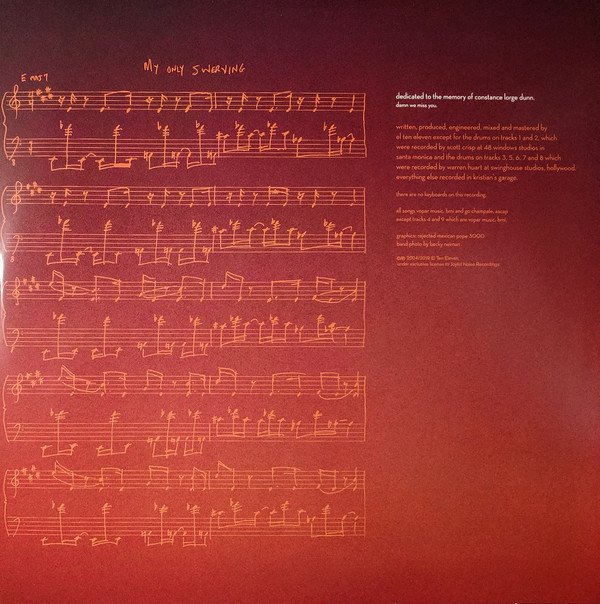 My only swerving
E maj7
dedicated to the memory of constance lorge dunn.
damn we miss you.
written, produced, engineered, mixed and mastered by
el ten eleven except for the drums on tracks 1 and 2, which
were recorded by scott crisp at 48 windows studios in
santa monica and the drums on tracks 3, 5, 6, 7 and 8 which
were recorded by warren huart at swinghouse studios, hollywood.
everything else recorded in kristian's garage.
there are no keyboards on this recording.
all songs vopar music, bmi and go champale, ascap
except tracks 4 and 9 which are vopar music, bmi.
graphics: rejected mexican pope 3000
band photo by becky neiman
2004/2018 El Ten Eleven
under exclusive license to Joyful Noise Recordings